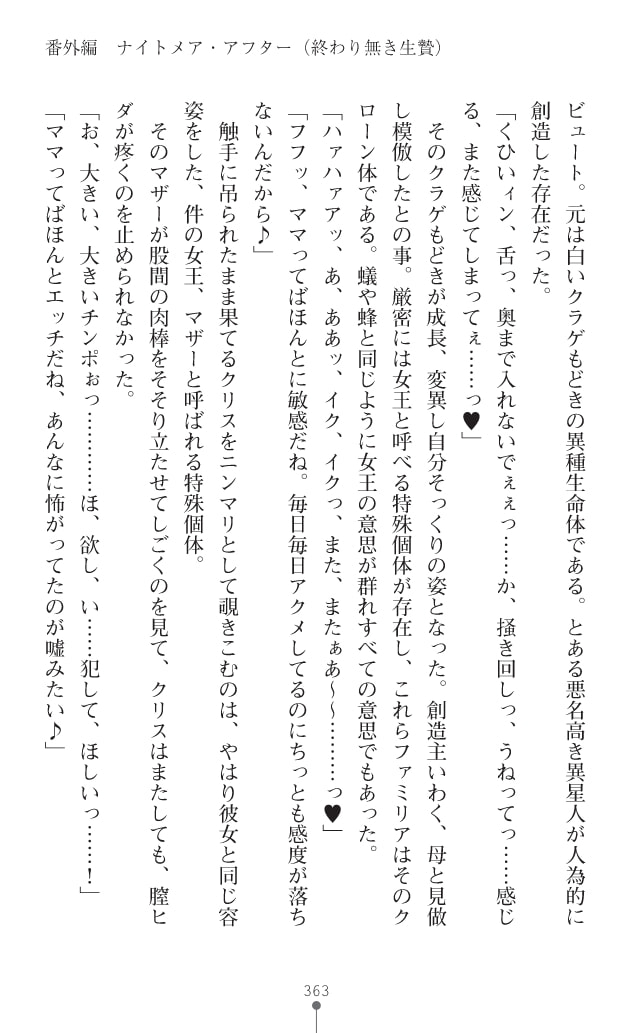 番外編　ナイトメア・アフター（終わり無き生贄）
ビュート。元は白いクラゲもどきの異種生命体である。とある悪名高き異星人が人為的に
創造した存在だった。
「くひいィン、舌っ、奥まで入れないでぇぇっ……か、掻き回しっ、うねってっ……感じ
る、また感じてしまってぇ……っ♥」
　そのクラゲもどきが成長、変異し自分そっくりの姿となった。創造主いわく、母と見做
し模倣したとの事。厳密には女王と呼べる特殊個体が存在し、これらファミリアはそのク
ローン体である。蟻や蜂と同じように女王の意思が群れすべての意思でもあった。
「ハァハァアッ、あ、ああッ、イク、イクっ、また、またぁあ～～………っ♥」
「フフッ、ママってばほんとに敏感だね。毎日毎日アクメしてるのにちっとも感度が落ち
ないんだから♪」
　触手に吊られたまま果てるクリスをニンマリとして覗きこむのは、やはり彼女と同じ容
姿をした、件の女王、マザーと呼ばれる特殊個体。
　そのマザーが股間の肉棒をそそり立たせてしごくのを見て、クリスはまたしても、膣ヒ
ダが疼くのを止められなかった。
「お、大きい、大きいチンポぉっ…………ほ、欲し、い……犯して、ほしいっ……！」
「ママってばほんとエッチだね、あんなに怖がってたのが嘘みたい♪」
363